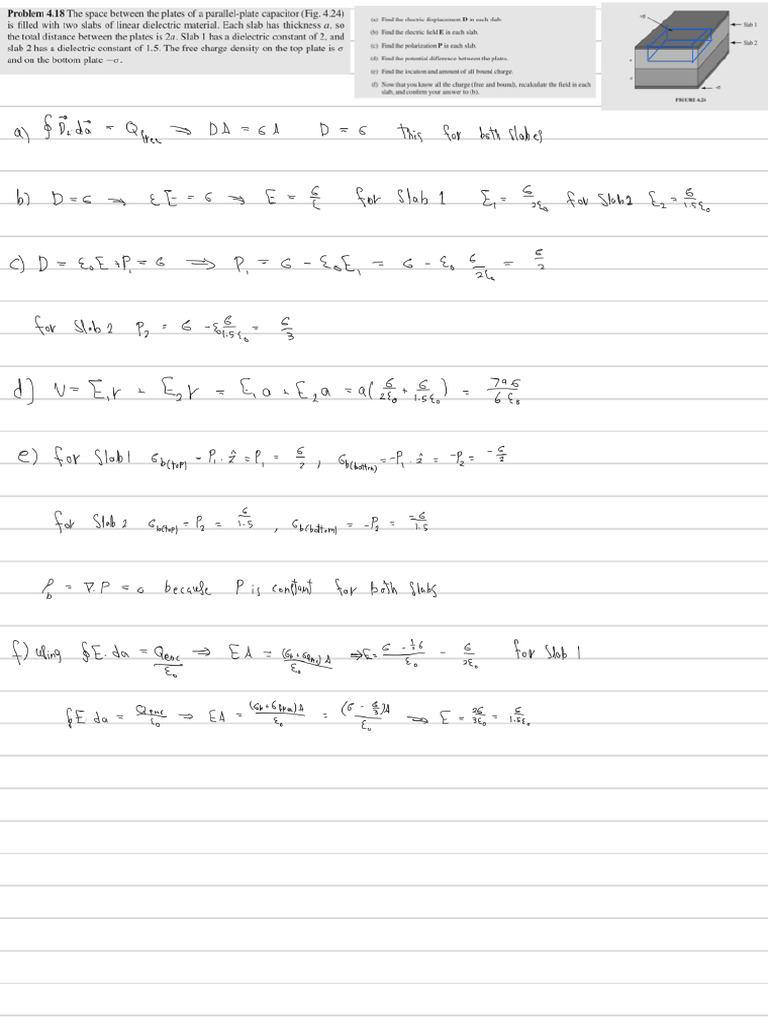 Problem 4.18 The space between the plates of a parallel-plate capacitor (Fig. 4.24)
is filled with two slabs of linear dielectric material. Each slab has thickness a, so
the total distance between the plates is 2a. Slab 1 has a dielectric constant of 2, and
slab 2 has a dielectric constant of 1.5. The free charge density on the top plate is σ
and on the bottom plate −σ.
(a) Find the electric displacement D in each slab.
(b) Find the electric field E in each slab.
(c) Find the polarization P in each slab.
(d) Find the potential difference between the plates.
(e) Find the location and amount of all bound charge.
(f) Now that you know all the charge (free and bound), recalculate the field in each
slab, and confirm your answer to (b).
+σ
Slab 1
Slab 2
a
a
−σ
FIGURE 4.24
a) ∮ D⃗. da⃗ = Q_free ⇒ DA = σA D = σ this for both slabes
b) D = σ → εE = σ → E = σ/ε for slab 1 E₁ = σ/2ε₀ for slab2 E₂ = σ/1.5ε₀
c) D = ε₀E + P₁ = σ ⇒ P₁ = σ − ε₀E₁ = σ − ε₀ σ/2ε₀ = σ/2
for slab 2 P₂ = σ − ε₀σ/1.5ε₀ = σ/3
d) V = E₁r + E₂r = E₁a + E₂a = a(σ/2ε₀ + σ/1.5ε₀) = 7aσ/6ε₀
e) for slab1 σb(top) = P₁. ẑ = P₁ = σ/2 , σb(bottom) = −P₁. ẑ = −P₂ = −σ/2
for slab 2 σb(top) = P₂ = σ/1.5 , σb(bottom) = −P₂ = −σ/1.5
ρb = ∇.P = 0 because P is constant for both slabs
f) using ∮E.da = Qenc/ε₀ ⇒ EA = (σb + σfree)A/ε₀ ⇒ E = σ − ½σ/ε₀ = σ/2ε₀ for slab 1
∮E da = Qenc/ε₀ → EA = (σb + σfree)A/ε₀ = (σ − σ/3)A/ε₀ ⇒ E = 2σ/3ε₀ = σ/1.5ε₀